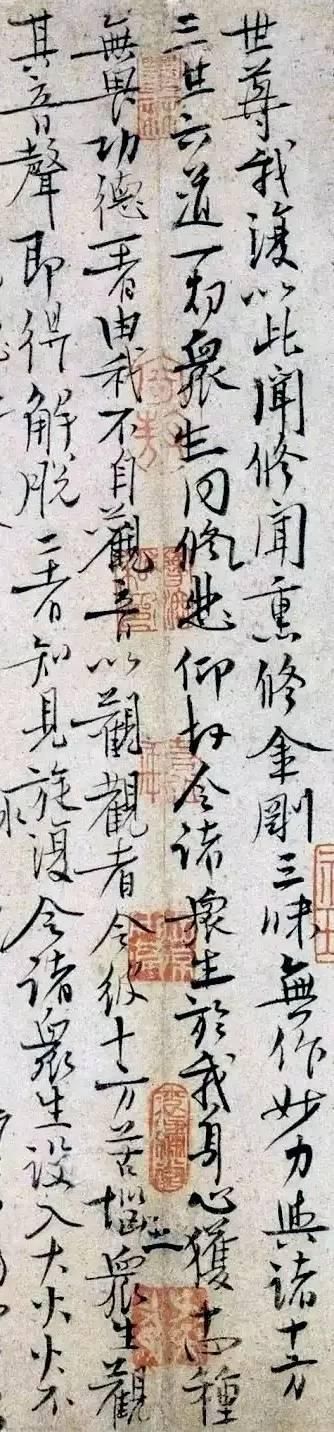 世尊我復以此聞修聞熏修金剛三昧無作妙力與諸十方
三世六道一切眾生同修悲仰故令諸眾生於我身心獲種
無畏功德一者由我不自觀音以觀觀者令彼十方苦惱眾生觀
其音聲即得解脫二者知見旋復令諸眾生設入大火火不